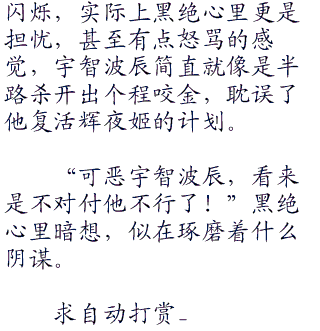 闪烁，实际上黑绝心里更是
担忧，甚至有点怒骂的感
觉，宇智波辰简直就像是半
路杀开出个程咬金，耽误了
他复活辉夜姬的计划。
“可恶宇智波辰，看来
是不对付他不行了！”黑绝
心里暗想，似在琢磨着什么
阴谋。
求自动打赏_